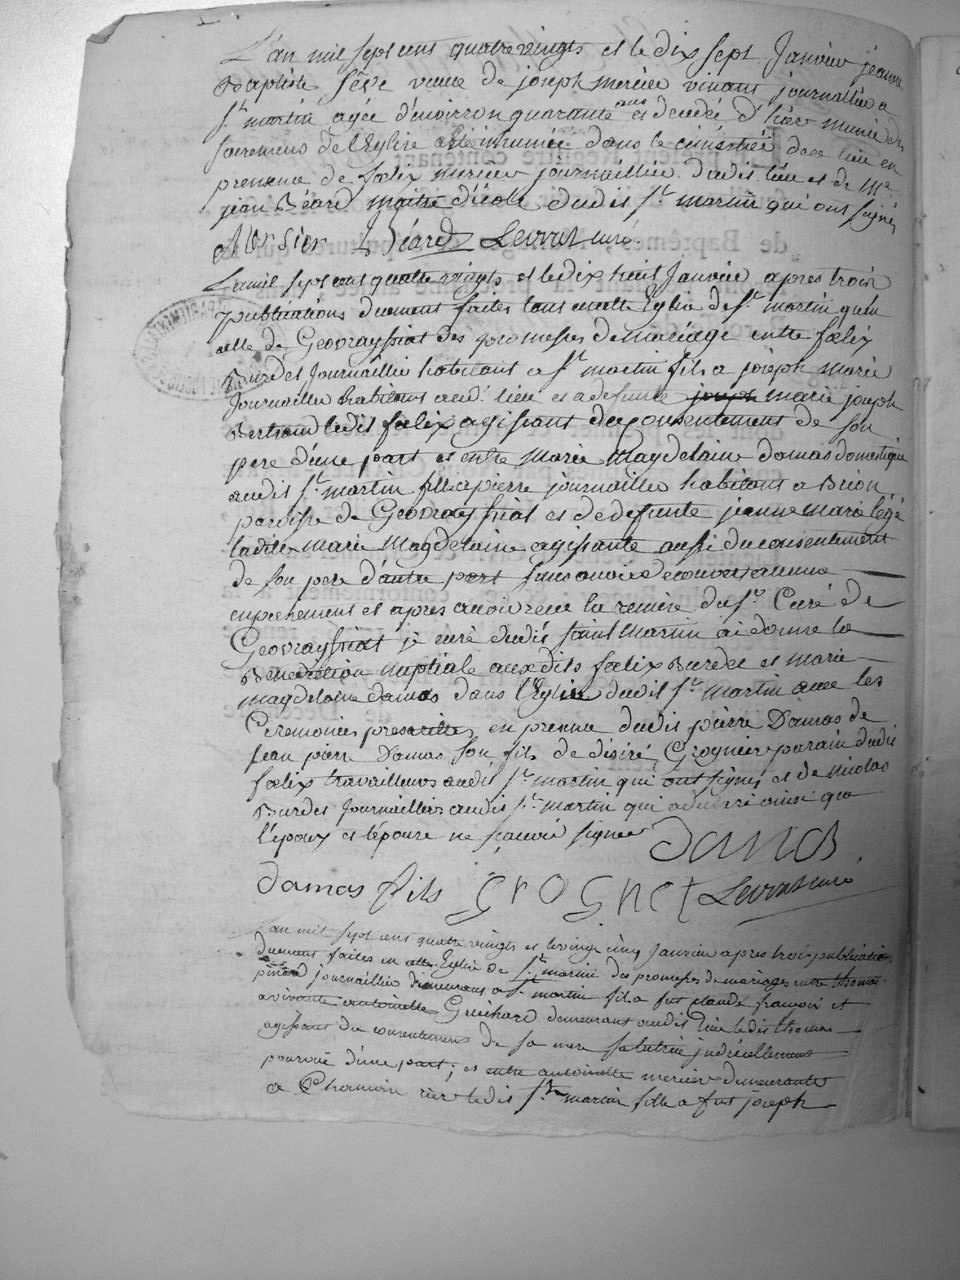 L'an mil sept cens quatre vingts et le dix sept Janvier jeanne
Baptiste Séve veuve de joseph mercier vivant journaillier a
St martin agée d'environ quarante ans et decedée d'hier munie des
sacremens de l'Eglise a été inhumée dans le cimetiére de ce lieu en
presence de foelix mercier journaillier dudit lieu et de Me
jean Béard maitre d'école dudit St martin qui ont signés
Mersier Béard Levrat curé
L'an mil sept cens quatre vingts et le dix huit Janvier apres trois
publications duement faites tant en cette Eglise de St martin qu'en
celle de Geovreyssiat des promesses de mariage entre foelix
Burdet Journaillier habitant a St martin fils a joseph marie
Journaillier habitant aud. lieu et a defunte marie joseph
Bertrand ledit foelix agissant du consentement de son
pere d'une part et entre Marie Magdelaine Damas domestique
audit St martin fille a pierre journaillier habitant a Brion
paroisse de Geovreyssiat et de defunte jeanne marie
ladite Marie Magdelaine agissante aussi du consentement
de son pere d'autre part sans avoir decouvert aucun
empechement et apres avoir receu la remise du Sr Curé de
Geovreyssiat je curé dudit Saint Martin ai donné la
Benediction nuptiale auxdits foelix Burdet et marie
magdelaine damas dans l'Eglise dudit St martin avec les
Ceremonies prescrittes en presence dudit pierre Damas de
Jean pierre Damas son fils de désiré Grognier parain dudit
foelix travailleurs audit St martin qui ont signés et de nicolas
Burdet Journaillier audit St martin qui a declaré ainsi que
l'epoux et l'épouse ne sçavoir signer
Damas
Damas fils GROGNET Levrat curé
L'an mil sept cens quatre vingts et le vingt cinq Janvier apres trois publications
duement faites en cette Eglise de St martin des promesses de mariages entre thomas
journaillier demeurant a St martin fils a fut claude françois et
a vivante antoinette Guichard demeurant audit lieu ledit thomas
agissant du consentement de sa mere sa tutrice judiciellement
pourvüe d'une part; et entre antoinette mercier demeurante
a Chamoin rier ledit St martin fille a fut joseph